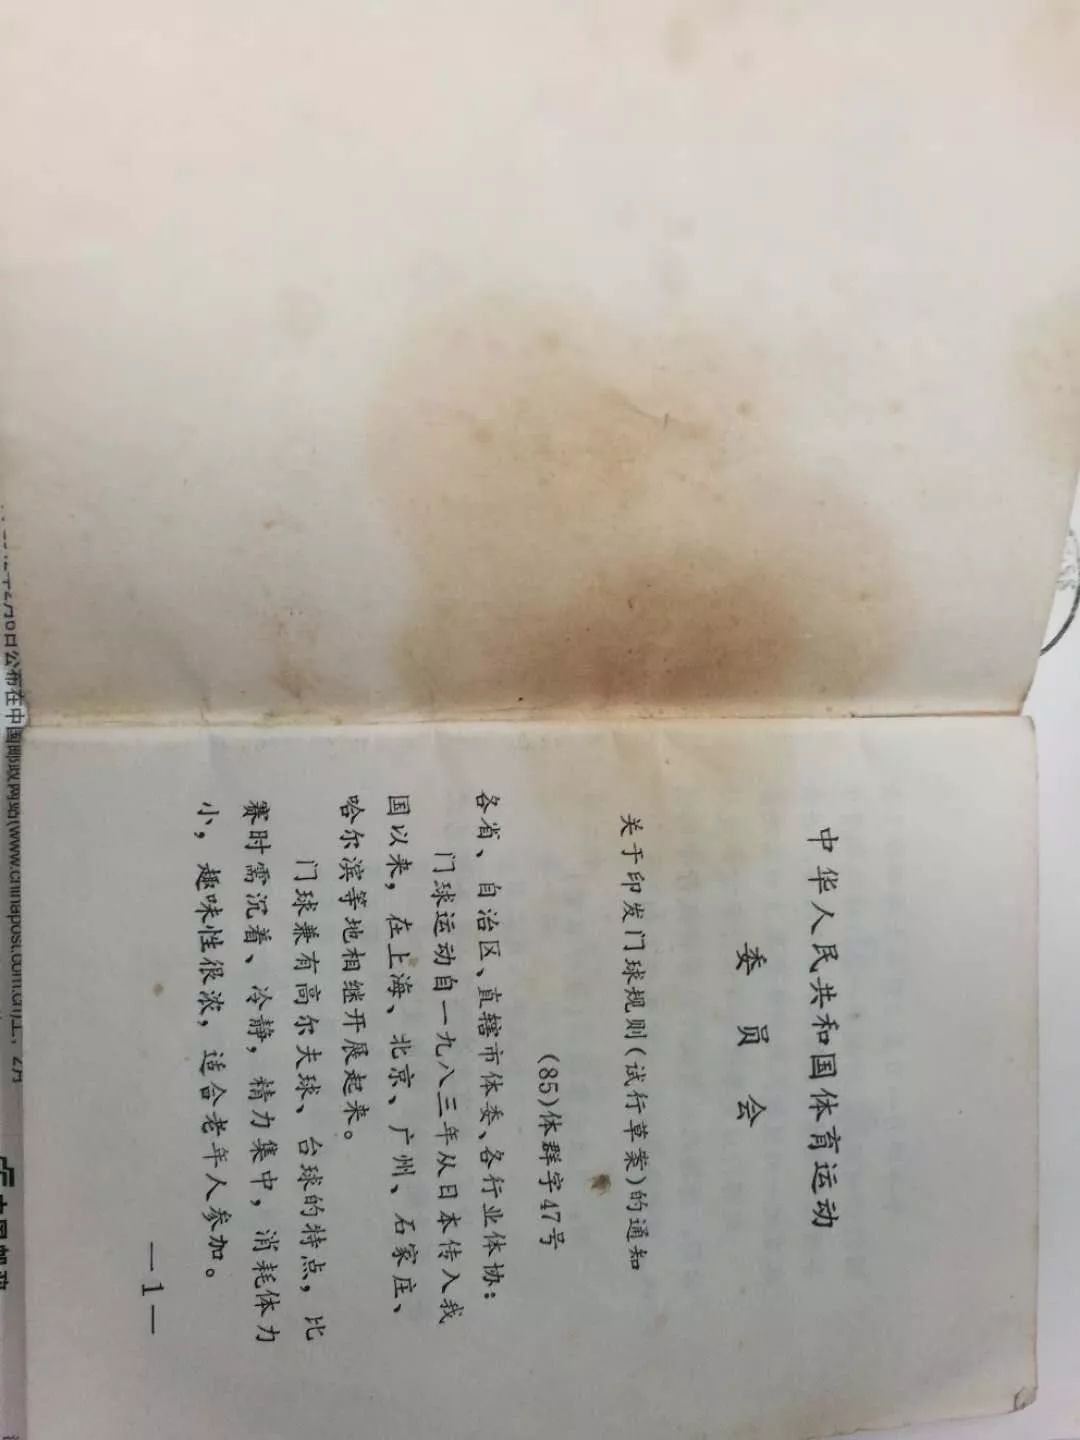 中华人民共和国体育运动
委员会
关于印发门球规则(试行草案)的通知
(85)体群字47号
各省、自治区、直辖市体委、各行业体协：
门球运动自一九八三年从日本传入我
国以来，在上海、北京、广州、石家庄、
哈尔滨等地相继开展起来。
门球兼有高尔夫球、台球的特点，比
赛时需沉着、冷静，精力集中，消耗体力
小，趣味性很浓，适合老年人参加。
—1—
公布在中国邮政网站(www.chinapost.com.cn)上，